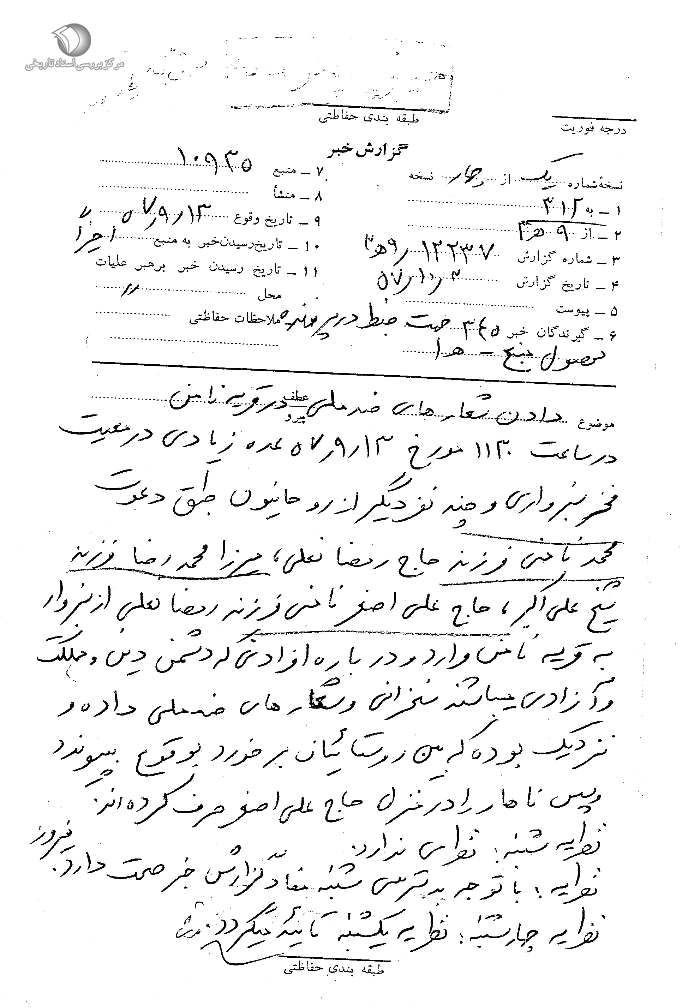 مرکز بررسی اسناد تاریخی
طبقه بندی حفاظتی
درجه فوریت
گزارش خبر
نسخه شماره یک از چهار نسخه
۱ – به ۳۱۲
۲ – از ۹ ه‍ ۲
۳ – شماره گزارش ۱۲۲۳۷ / ۹ ه‍ ۲
۴ – تاریخ گزارش ۵۷/۱۰/۳
۵ – پیوست
۶ – گیرندگان خبر ۳۴۵ جهت ضبط در پرونده
محصول منبع – ه‍ ۱
۷ – منبع ۱۰۹۳۵
۸ – منشأ
۹ – تاریخ وقوع ۵۷/۹/۱۳
۱۰ – تاریخ رسیدن خبر به منبع اخیراً
۱۱ – تاریخ رسیدن خبر برهبر عملیات
محل //
ملاحظات حفاظتی
موضوع دادن شعارهای ضد ملی در قریه نامن
در ساعت ۱۱۳۰ مورخ ۵۷/۹/۱۳ عده زیادی در معیت
فخر سبزواری و چند نفر دیگر از روحانیون طبق دعوت
محمد نامنی فرزند حاج رمضانعلی، میرزا محمد رضا فرزند
شیخ علی اکبر، حاج علی اصغر نامنی فرزند رمضانعلی از سبزوار
به قریه نامن وارد و در باره افرادی که دشمن دین و مملکت
و آزادی میباشند سخنرانی و شعارهای ضد ملی داده و
نزدیک بوده که بین روستائیان برخورد بوقوع بپیوندد
و پس ناهار را در منزل حاج علی اصغر صرف کرده اند.
نظریه شنبه: نظری ندارد.
نظریه: با توجه بدسترسی شنبه مفاد گزارش خبر صحت دارد. فیروز
نظریه چهارشنبه: نظریه یکشنبه تائید میگردد.
طبقه بندی حفاظتی